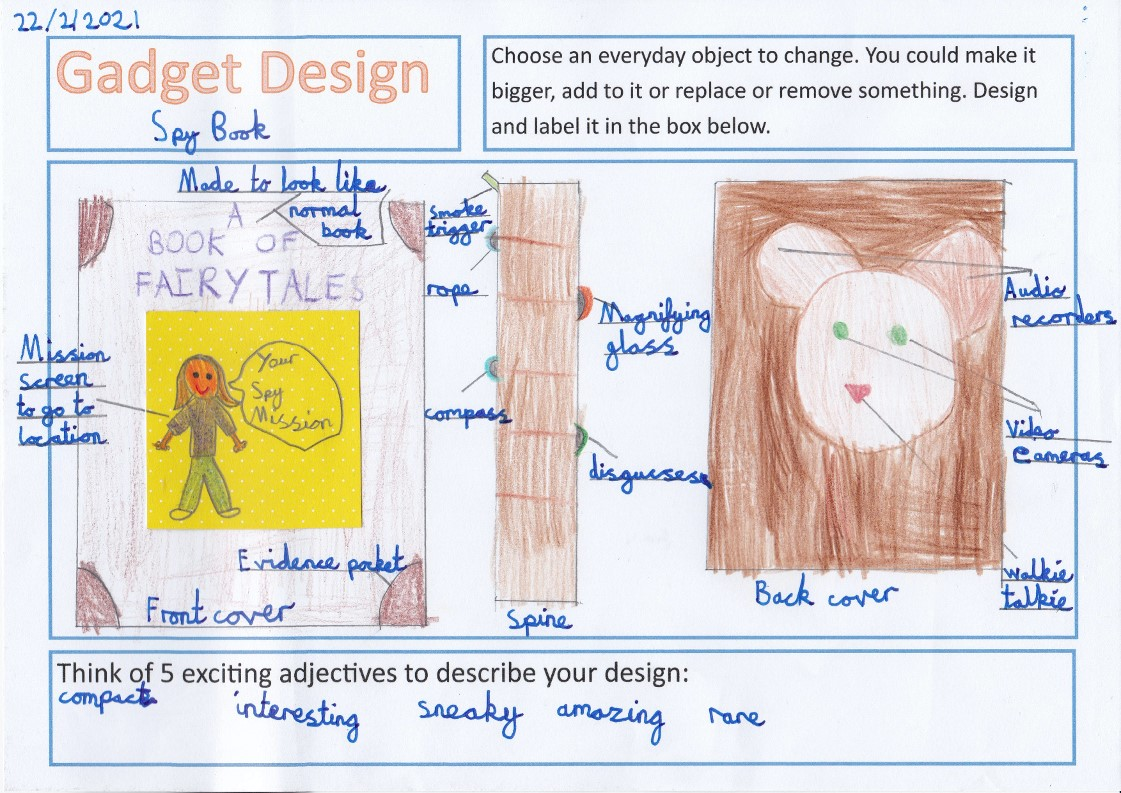 22/2/2021
Gadget Design
Spy Book
Choose an everyday object to change. You could make it
bigger, add to it or replace or remove something. Design
and label it in the box below.
Made to look like
normal
book
A
BOOK OF
FAIRY TALES
Mission
screen
to go to
location
Your
Spy
Mission
Evidence pocket
Front cover
smoke
trigger
rope
compass
Magnifying
glass
disguises
Spine
Audio
recorders
Video
Cameras
walkie
talkie
Back cover
Think of 5 exciting adjectives to describe your design:
compact interesting sneaky amazing rare